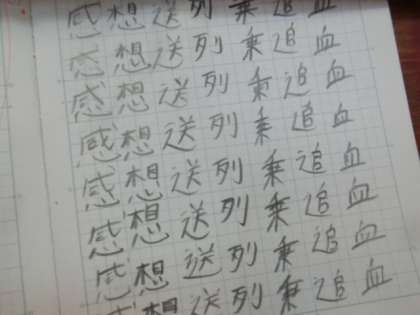 感想送列乗追血
感想送列乗追血
感想送列乗追血
感想送列乗追血
感想送列乗追血
感想送列乗追血
感想送列乗追血
感想送列乗追血